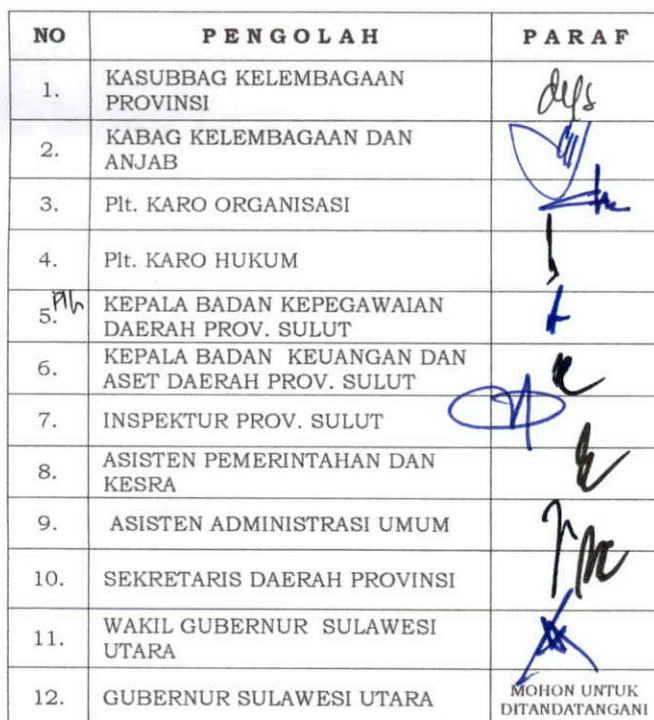 NO PENGOLAH PARAF
1. KASUBBAG KELEMBAGAAN
PROVINSI
2. KABAG KELEMBAGAAN DAN
ANJAB
3. Plt. KARO ORGANISASI
4. Plt. KARO HUKUM
5. Plh KEPALA BADAN KEPEGAWAIAN
DAERAH PROV. SULUT
6. KEPALA BADAN KEUANGAN DAN
ASET DAERAH PROV. SULUT
7. INSPEKTUR PROV. SULUT
8. ASISTEN PEMERINTAHAN DAN
KESRA
9. ASISTEN ADMINISTRASI UMUM
10. SEKRETARIS DAERAH PROVINSI
11. WAKIL GUBERNUR SULAWESI
UTARA
12. GUBERNUR SULAWESI UTARA
MOHON UNTUK
DITANDATANGANI